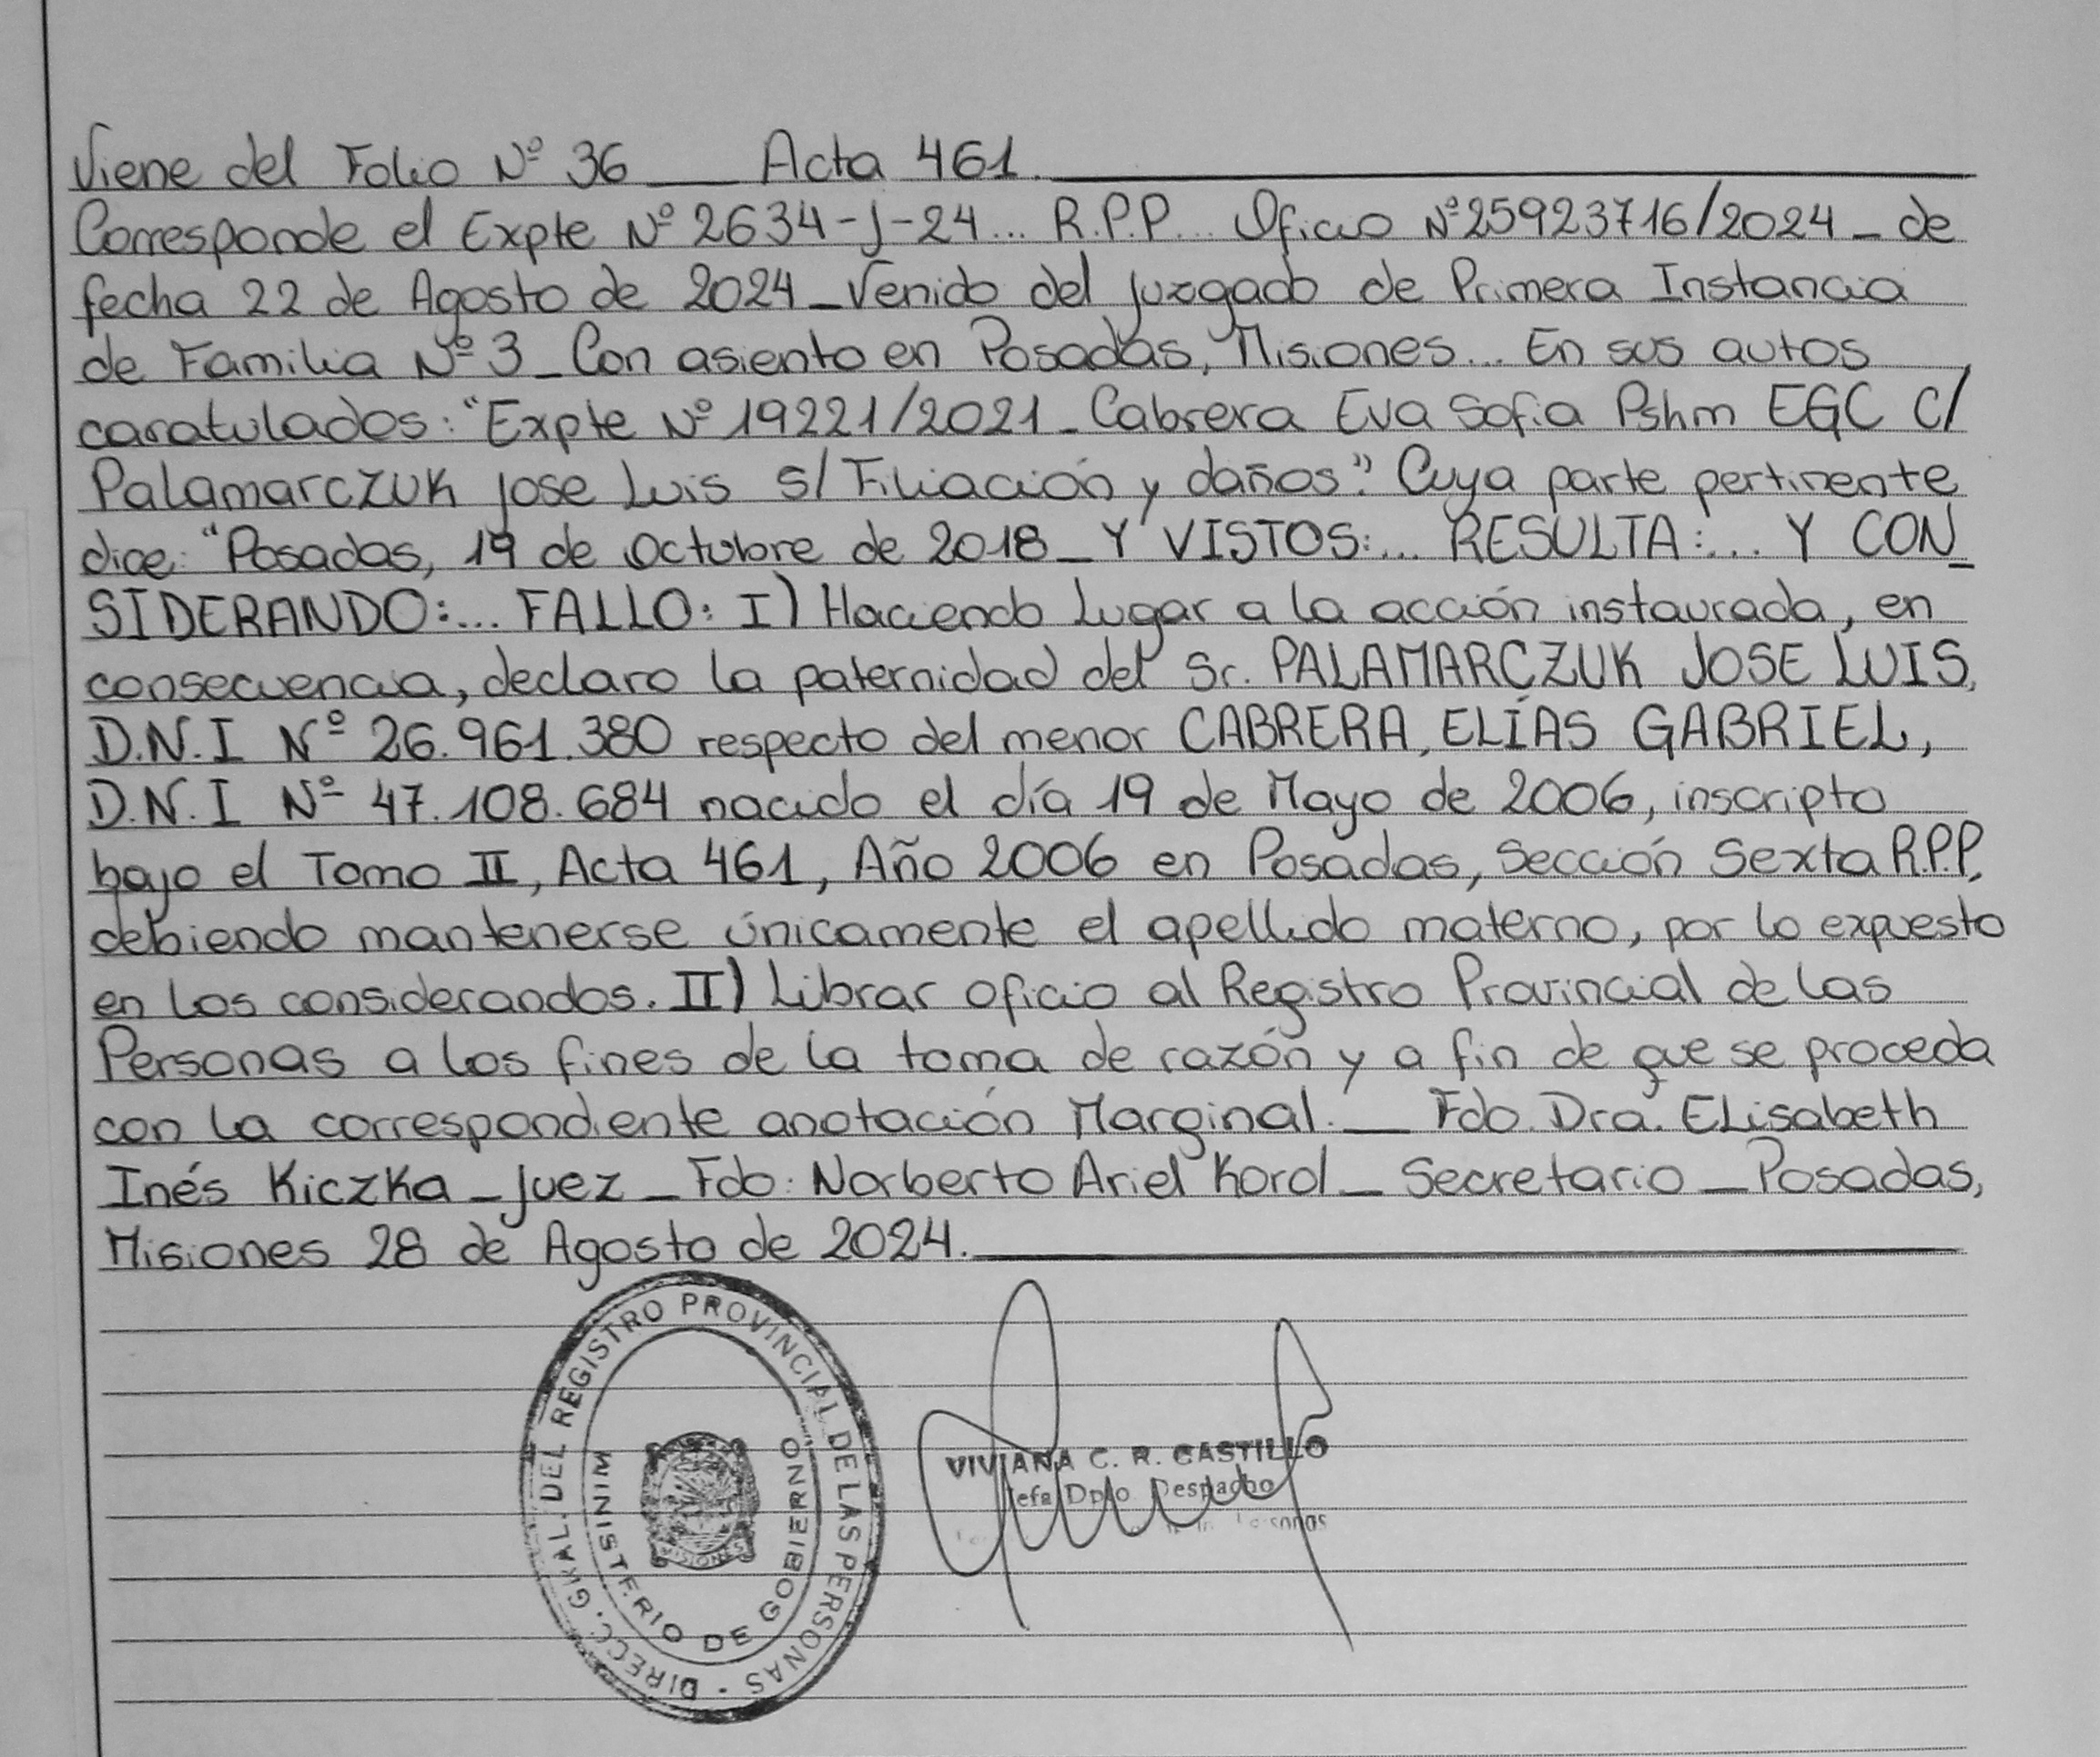 Viene del Folio Nº 36 __ Acta 461.
Corresponde el Expte Nº 2634-J-24... R.P.P... Oficio Nº25923716/2024 - de
fecha 22 de Agosto de 2024 - Venido del Juzgado de Primera Instancia
de Familia Nº 3 - Con asiento en Posadas, Misiones... En sus autos
caratulados: "Expte Nº 19221/2021 - Cabrera Eva Sofia Pshm EGC C/
Palamarczuk Jose Luis S/ Filiación y daños". Cuya parte pertinente
dice: "Posadas, 19 de Octubre de 2018 - Y VISTOS:... RESULTA:... Y CON_
SIDERANDO:... FALLO: I) Haciendo Lugar a la acción instaurada, en
consecuencia, declaro la paternidad del Sr. PALAMARCZUK JOSE LUIS,
D.N.I Nº 26.961.380 respecto del menor CABRERA, ELÍAS GABRIEL,
D.N.I Nº 47.108.684 nacido el día 19 de Mayo de 2006, inscripto
bajo el Tomo II, Acta 461, Año 2006 en Posadas, Sección Sexta R.P.P,
debiendo mantenerse únicamente el apellido materno, por lo expuesto
en los considerandos. II) Librar oficio al Registro Provincial de las
Personas a los fines de la toma de razón y a fin de que se proceda
con la correspondiente anotación Marginal. __ Fdo. Dra. Elisabeth
Inés Kiczka - Juez - Fdo: Norberto Ariel Korol - Secretario - Posadas,
Misiones 28 de Agosto de 2024.
DIRECC. GRAL. DEL REGISTRO PROVINCIAL DE LAS PERSONAS -
MINISTERIO DE GOBIERNO
MISIONES
VIVIANA C. R. CASTILLO
Jefa Dpto Despacho